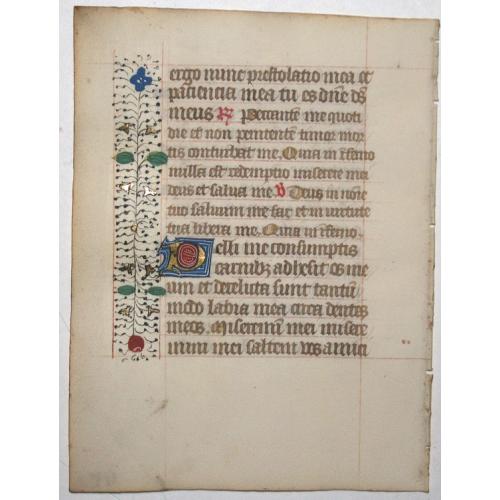 ergo nunc prestolatio mea et
paciencia mea tu es dñe ds̃
meus R̃ Peccantẽ me quoti
die et non penitentẽ timor mor
tis conturbat me. Quia in ĩferno
nulla est redemptio miserere mei
deus et salua me V Deus in noĩe
tuo saluum me fac et in uirtute
tua libera me. Quia in ĩferno.
Pelli me consumptis
carnibꝫ adhesit os me
um et derelicta sunt tantũ
mõdo labia mea circa dentes
meos. Miseremini mei misere
mini mei saltem vos amici